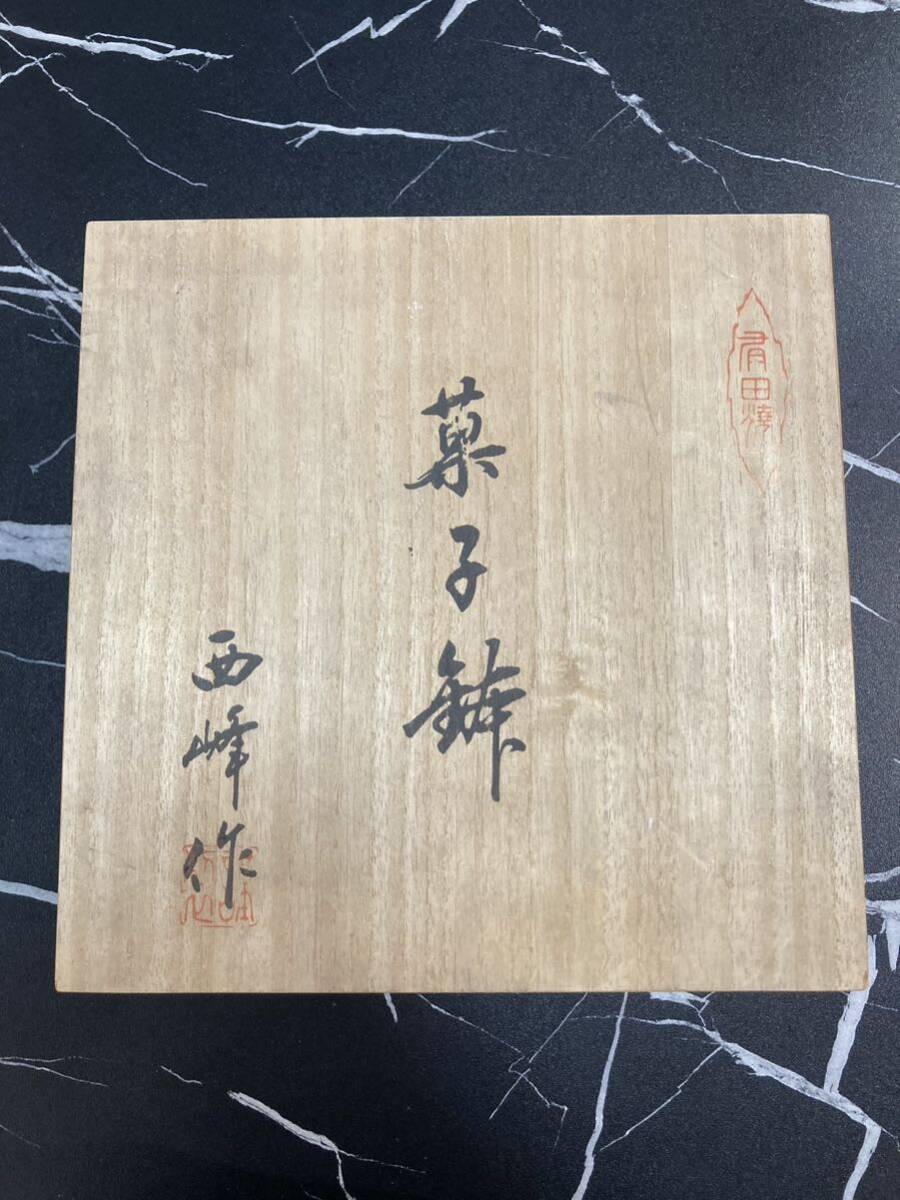 有田焼
菓子鉢
西峰作